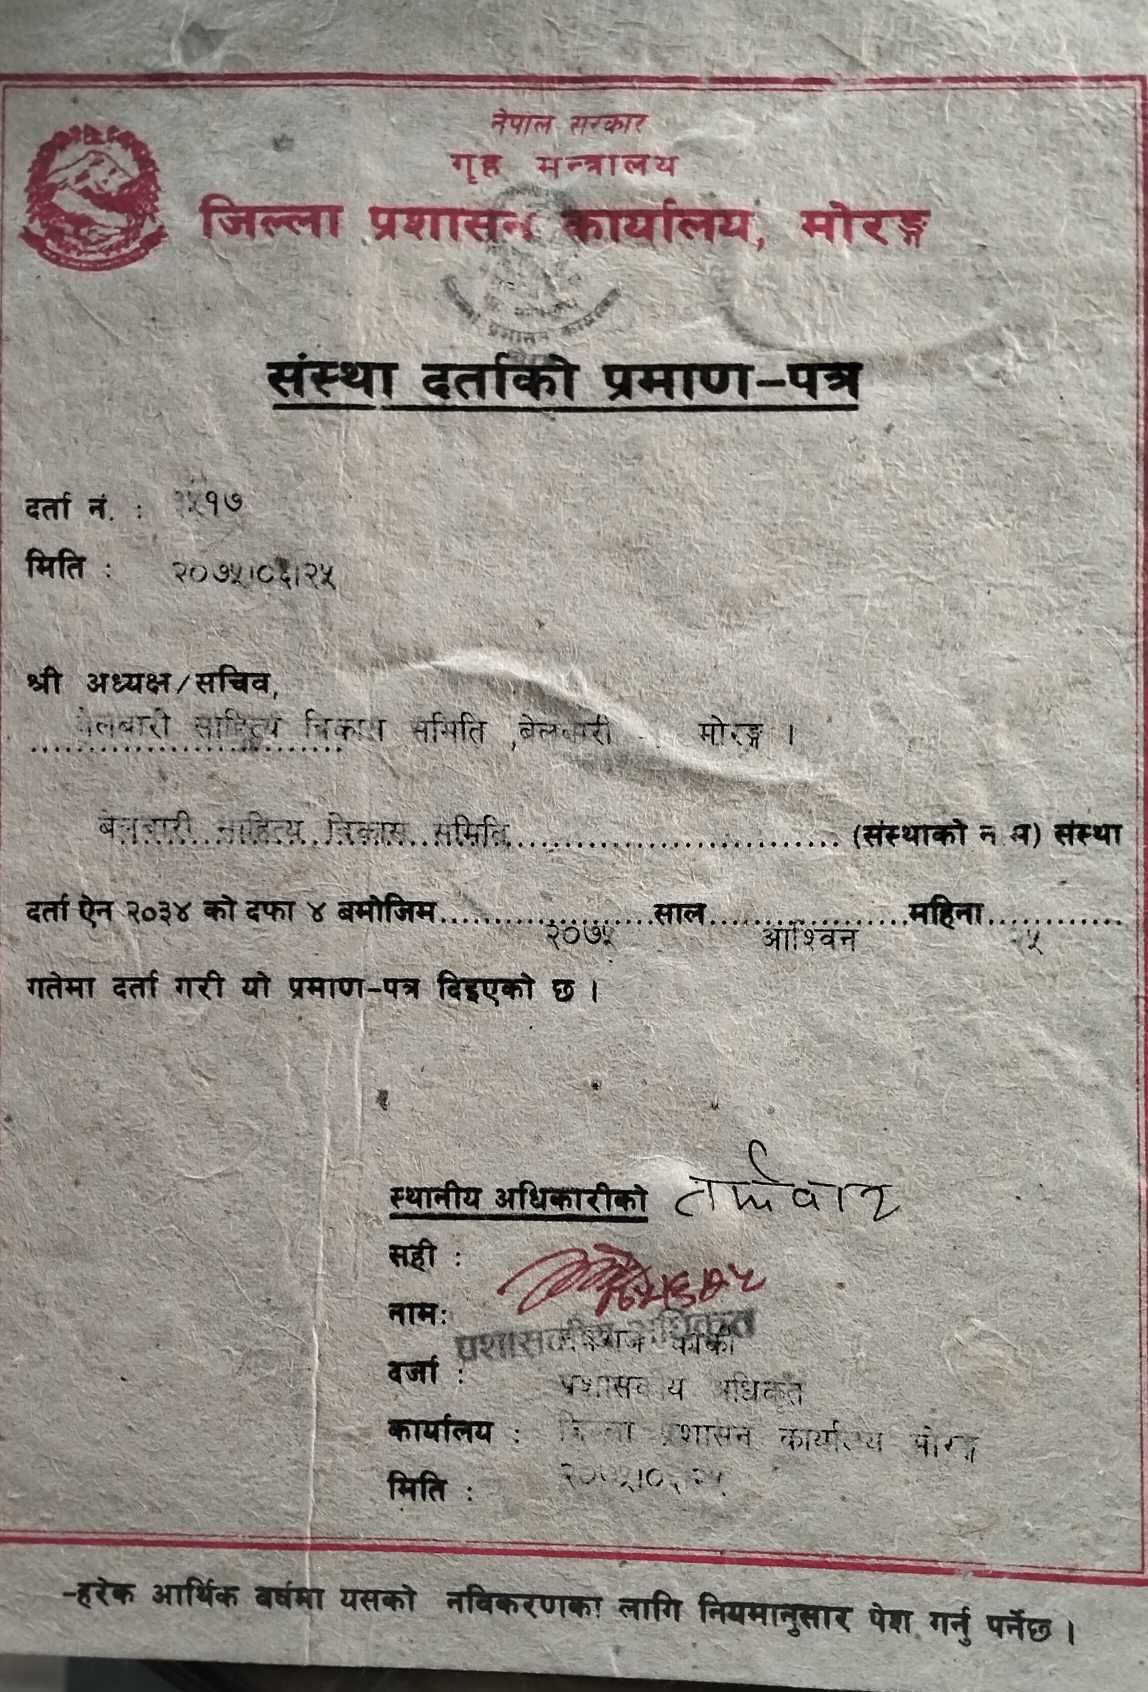 नेपाल सरकार
गृह मन्त्रालय
जिल्ला प्रशासन कार्यालय, मोरङ्ग
संस्था दर्ताको प्रमाण-पत्र
दर्ता नं. :
मिति : २०७५।०६।२५
श्री अध्यक्ष/सचिव,
बेलबारी साहित्य विकास समिति ,बेलबारी - मोरङ्ग ।
बेलबारी साहित्य विकास समिति (संस्थाको नाम) संस्था
दर्ता ऐन २०३४ को दफा ४ बमोजिम २०७५ साल आश्विन महिना २५
गतेमा दर्ता गरी यो प्रमाण-पत्र दिइएको छ ।
स्थानीय अधिकारीको
सही :
नाम: कार्की
प्रशासकीय अधिकृत
दर्जा : प्रशासकीय अधिकृत
कार्यालय : जिल्ला प्रशासन कार्यालय मोरङ्ग
मिति : २०७५।०६।२५
-हरेक आर्थिक वर्षमा यसको नविकरणका लागि नियमानुसार पेश गर्नु पर्नेछ ।